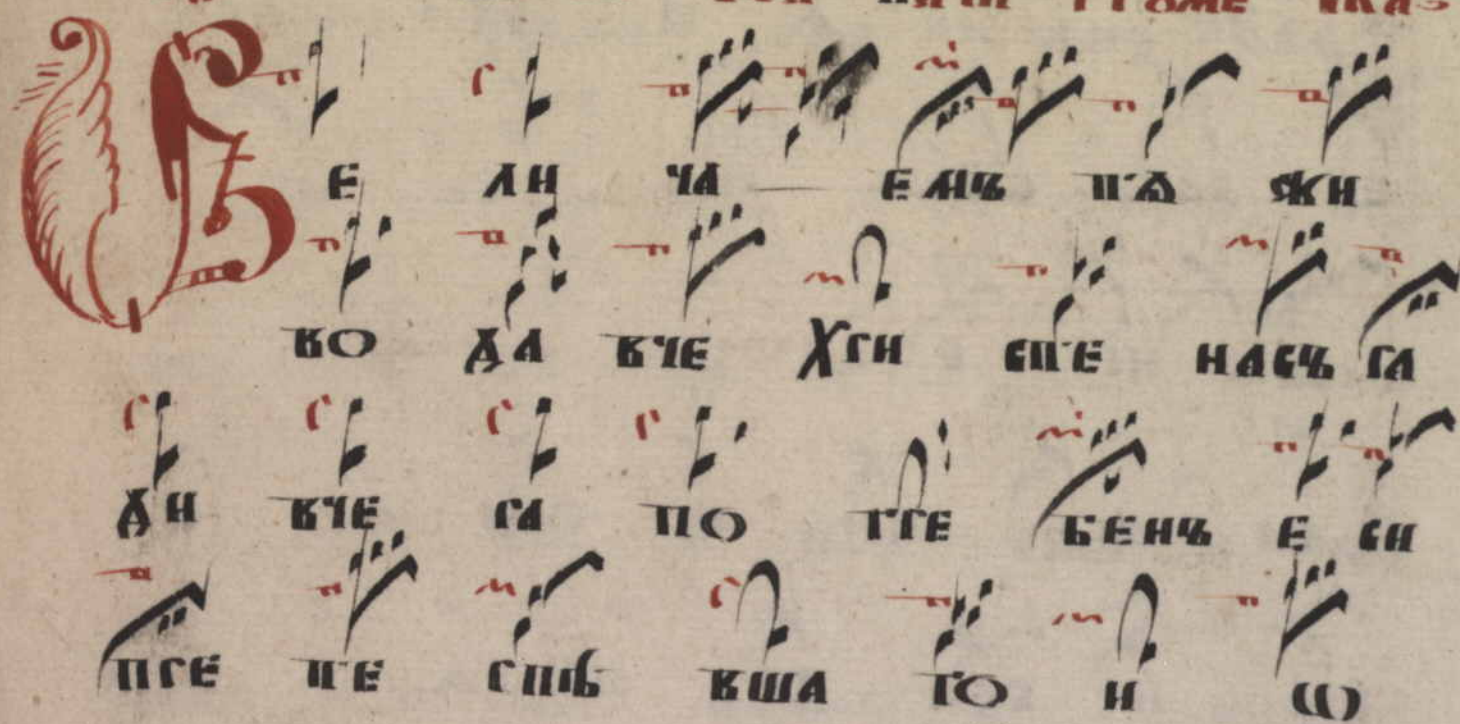 В Е ЛИ ЧА ЕМЪ ТѦ ЖИ
ВО ДА ВЧЕ ХРИ СТЕ НАСЪ РА
ДИ ВЧЕ РА ПО ГРЕ БЕНЪ Е СИ
ПРЕ ТЕ РПѢ ВША ГО И Ѡ